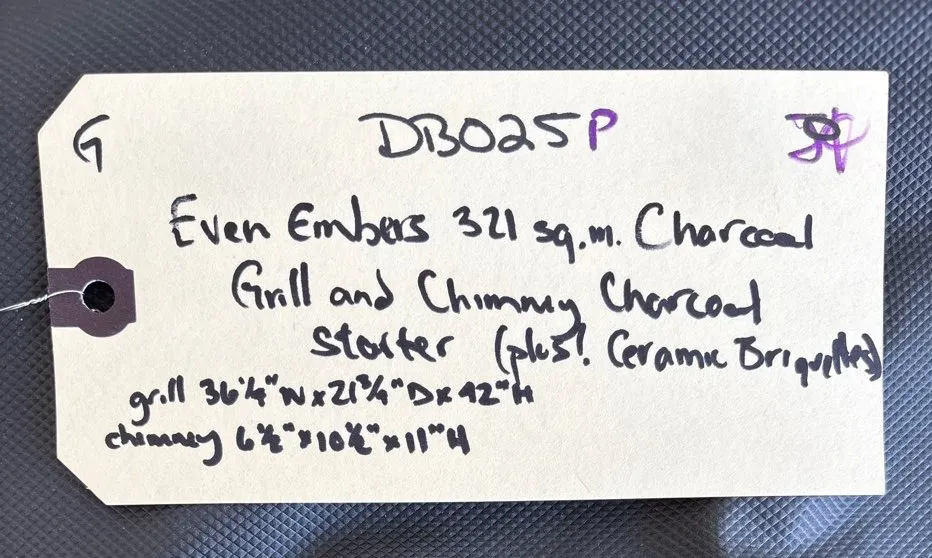 G DB025P
Even Embers 321 sq.m. Charcoal
Grill and Chimney Charcoal
Starter (plus! Ceramic Briquettes)
grill 36¼"W x 21¾"D x 42"H
chimney 6½" x 10½" x 11"H